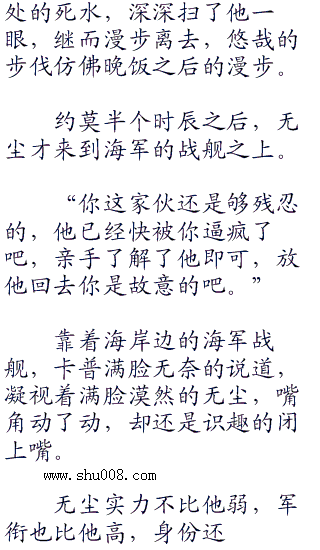 处的死水，深深扫了他一
眼，继而漫步离去，悠哉的
步伐仿佛晚饭之后的漫步。
约莫半个时辰之后，无
尘才来到海军的战舰之上。
“你这家伙还是够残忍
的，他已经快被你逼疯了
吧，亲手了解了他即可，放
他回去你是故意的吧。”
靠着海岸边的海军战
舰，卡普满脸无奈的说道，
凝视着满脸漠然的无尘，嘴
角动了动，却还是识趣的闭
上嘴。
www.shu008.com
无尘实力不比他弱，军
衔也比他高，身份还